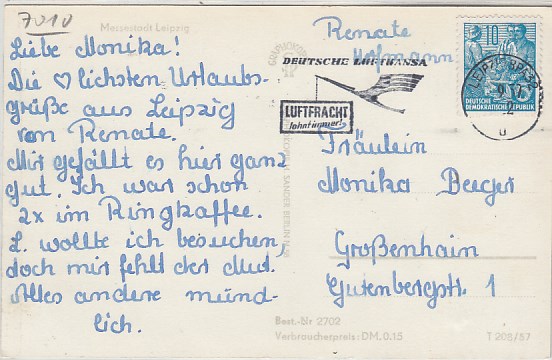 7010
Messestadt Leipzig
Liebe Monika!
Die ♡lichsten Urlaubs-
grüße aus Leipzig
von Renate.
Mir gefällt es hier ganz
gut. Ich war schon
2x im Ringkaffee.
L. wollte ich besuchen,
doch mir fehlt der Mut.
Alles andere münd-
lich.
Renate
Hofmann
DEUTSCHE LUFTHANSA
LUFTFRACHT
lohnt immer!
10
DEUTSCHE
DEMOKRATISCHE REPUBLIK
LEIPZIG
Fräulein
Monika Berger
Großenhain
Gutenbergstr. 1
Best.-Nr 2702
Verbraucherpreis: DM. 0.15
T 208/57